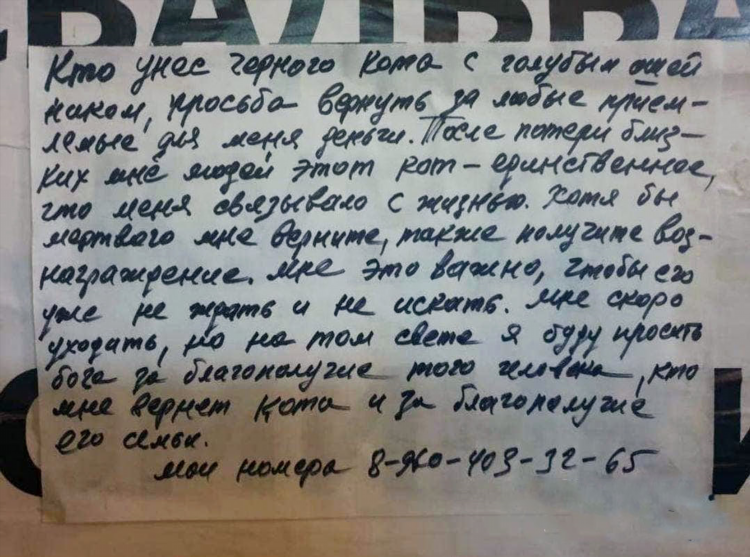 СВАДЬБА
Кто унес черного кота с голубым ошей
ником, просьба вернуть за любые прием-
лемые для меня деньги. После потери близ-
ких мне людей этот кот - единственное,
что меня связывало с жизнью. Хотя бы
мертвого мне верните, также получите воз-
награждение. Мне это важно, чтобы его
уже не ждать и не искать. Мне скоро
уходить, но на том свете я буду просить
бога за благополучие того человека, кто
мне вернет кота и за благополучие
его семьи.
Мои номера 8-960-403-32-65